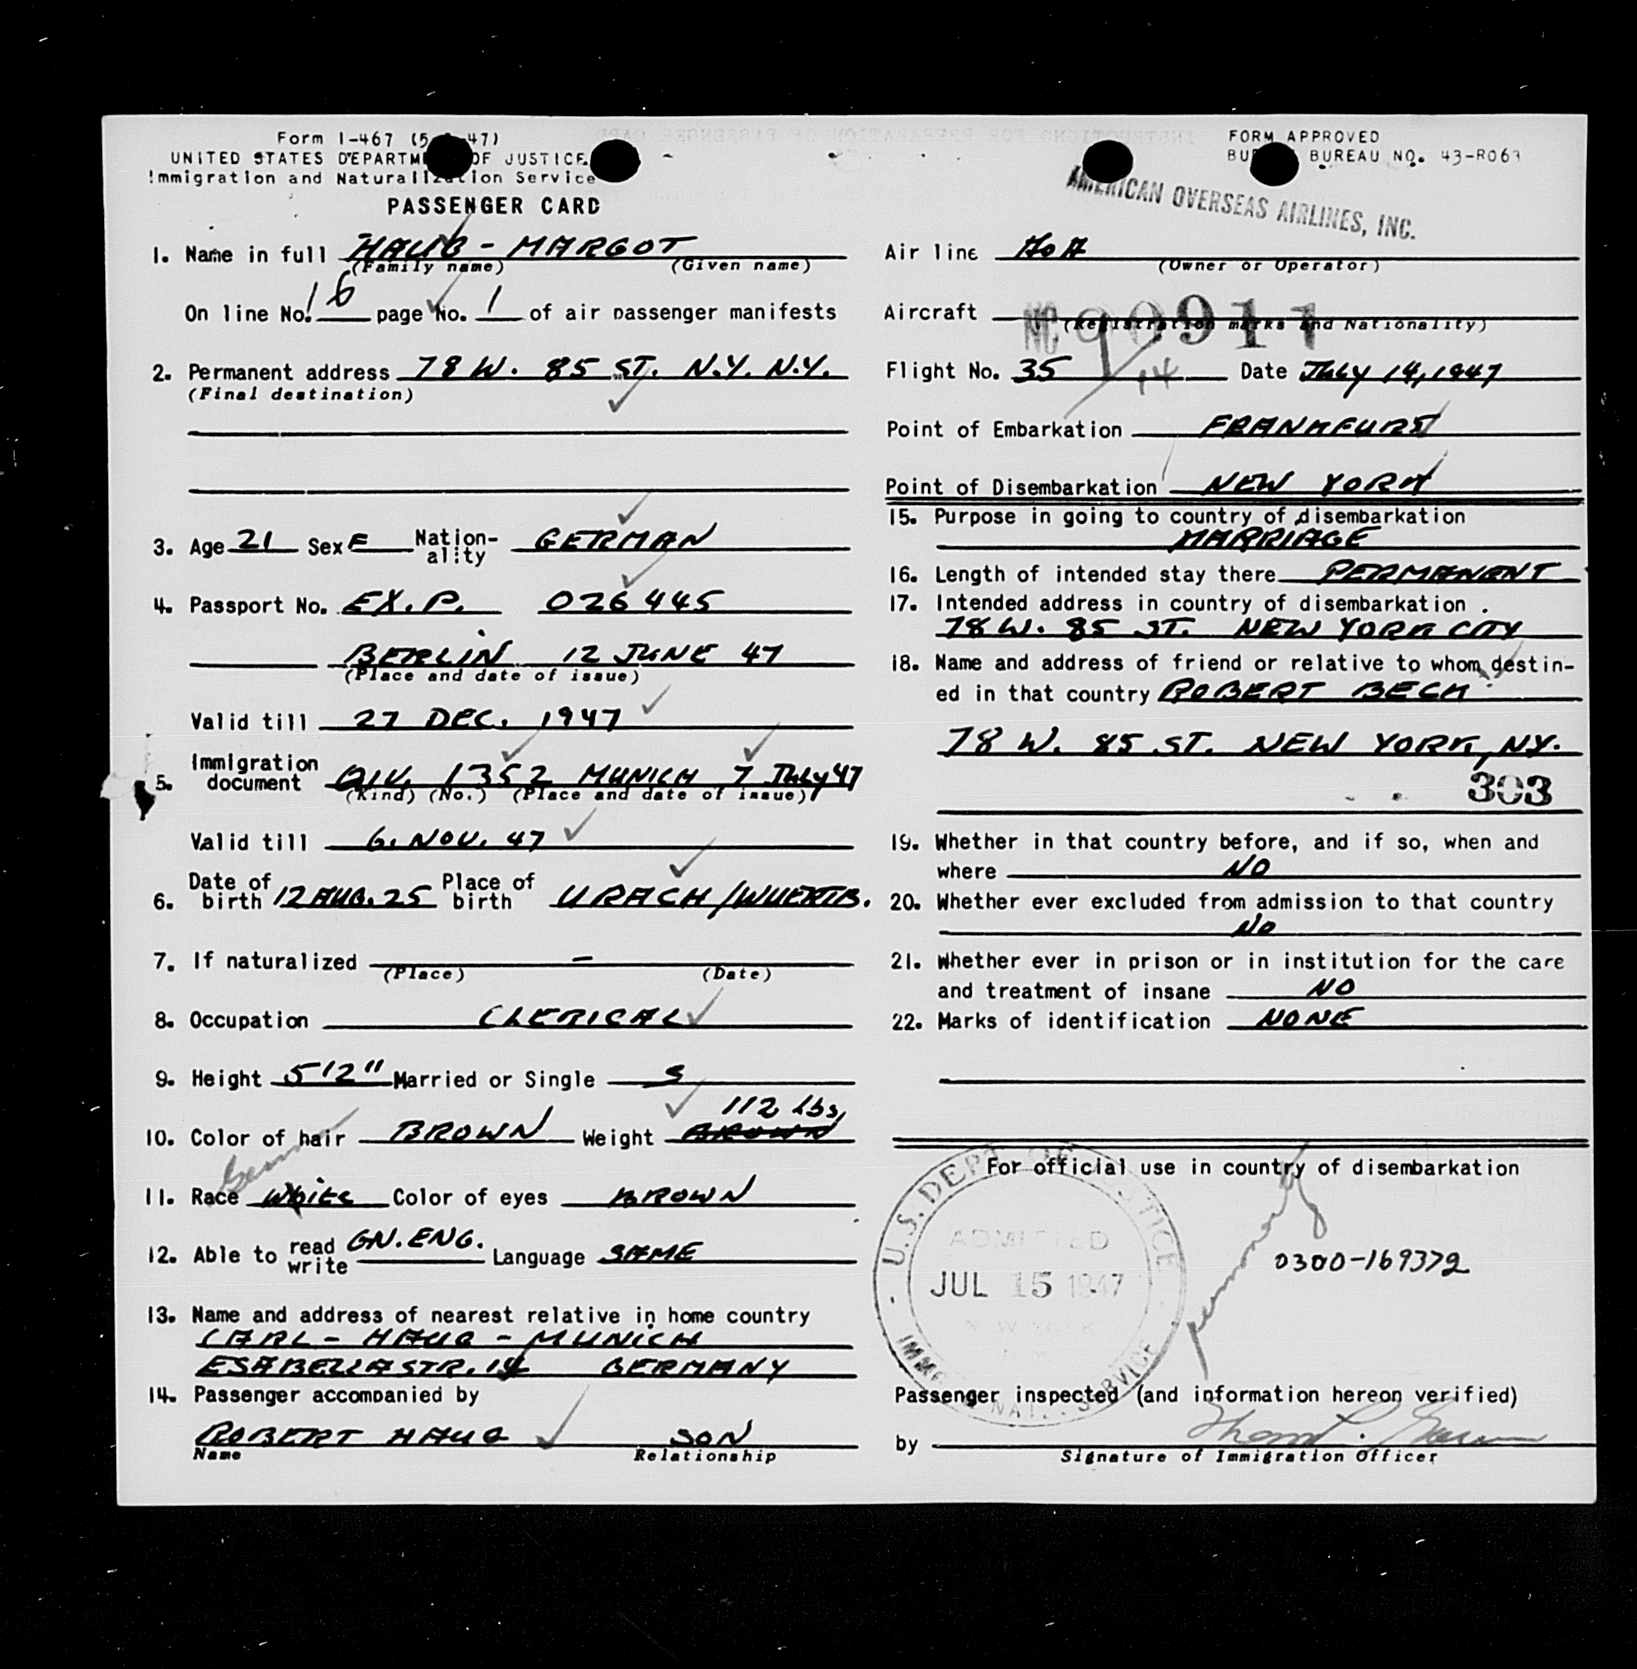 Form I-467 (5 47)
UNITED STATES DEPARTM OF JUSTICE
Immigration and Naturalization Service
PASSENGER CARD
1. Name in full HAUG - MARGOT
(Family name) (Given name)
On line No. 16 page No. 1 of air passenger manifests
2. Permanent address 78 W. 85 ST. N.Y. N.Y.
(Final destination)
3. Age 21 Sex F Nation-ality GERMAN
4. Passport No. EX.P. 026445
BERLIN 12 JUNE 47
(Place and date of issue)
Valid till 27 DEC. 1947
5. Immigration document QIV. 1352 MUNICH 7 JULY 47
(Kind) (No.) (Place and date of issue)
Valid till 6. NOV. 47
6. Date of birth 12 AUG. 25 Place of birth URACH/WUERTTB.
7. If naturalized -
(Place) (Date)
8. Occupation CLERICAL
9. Height 5'2" Married or Single S
112 lbs,
10. Color of hair BROWN Weight BROWN
German
11. Race White Color of eyes BROWN
12. Able to read write GN. ENG. Language SAME
13. Name and address of nearest relative in home country
CARL - HAUG - MUNICH
ESABELLASTR. 14 GERMANY
14. Passenger accompanied by
ROBERT HAUG SON
Name Relationship
FORM APPROVED
BU BUREAU NO. 43-R063
AMERICAN OVERSEAS AIRLINES, INC.
Air line AOA
(Owner or Operator)
Aircraft NC 90911
(Registration marks and Nationality)
Flight No. 35 14 Date July 14, 1947
Point of Embarkation FRANKFURT
Point of Disembarkation NEW YORK
15. Purpose in going to country of disembarkation
MARRIAGE
16. Length of intended stay there PERMANENT
17. Intended address in country of disembarkation
78 W. 85 ST. NEW YORK CITY
18. Name and address of friend or relative to whom destin-
ed in that country ROBERT BECK
78 W. 85 ST. NEW YORK, NY.
303
19. Whether in that country before, and if so, when and
where NO
20. Whether ever excluded from admission to that country
No
21. Whether ever in prison or in institution for the care
and treatment of insane NO
22. Marks of identification NONE
For official use in country of disembarkation
U.S. DEPT OF JUSTICE
ADMITTED
JUL 15 1947
NEW YORK
IMM NAT. SERVICE
permanently
0300-169372
Passenger inspected (and information hereon verified)
by
Signature of Immigration Officer